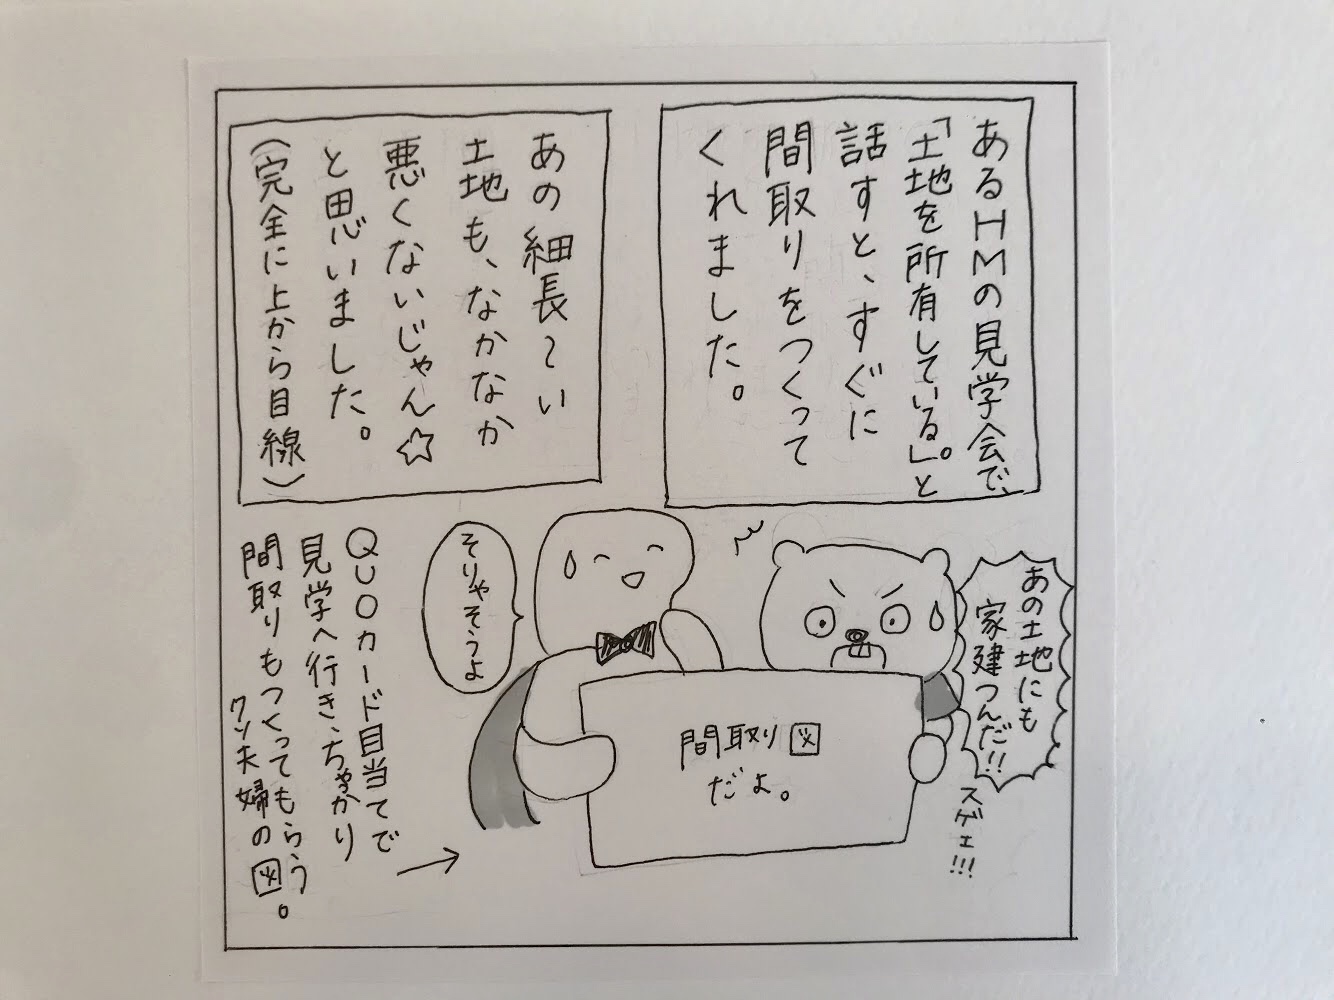 あるHMの見学会で、
「土地を所有している。」と
話すと、すぐに
間取りをつくって
くれました。
あの細長〜い
土地も、なかなか
悪くないじゃん☆
と思いました。
（完全に上から目線）
あの土地にも
家建つんだ!!
スゲェ!!!
そりゃそうよ
間取り図
だよ。
QUOカード目当てで
見学へ行き、ちゃっかり
間取りもつくってもらう
クソ夫婦の図。